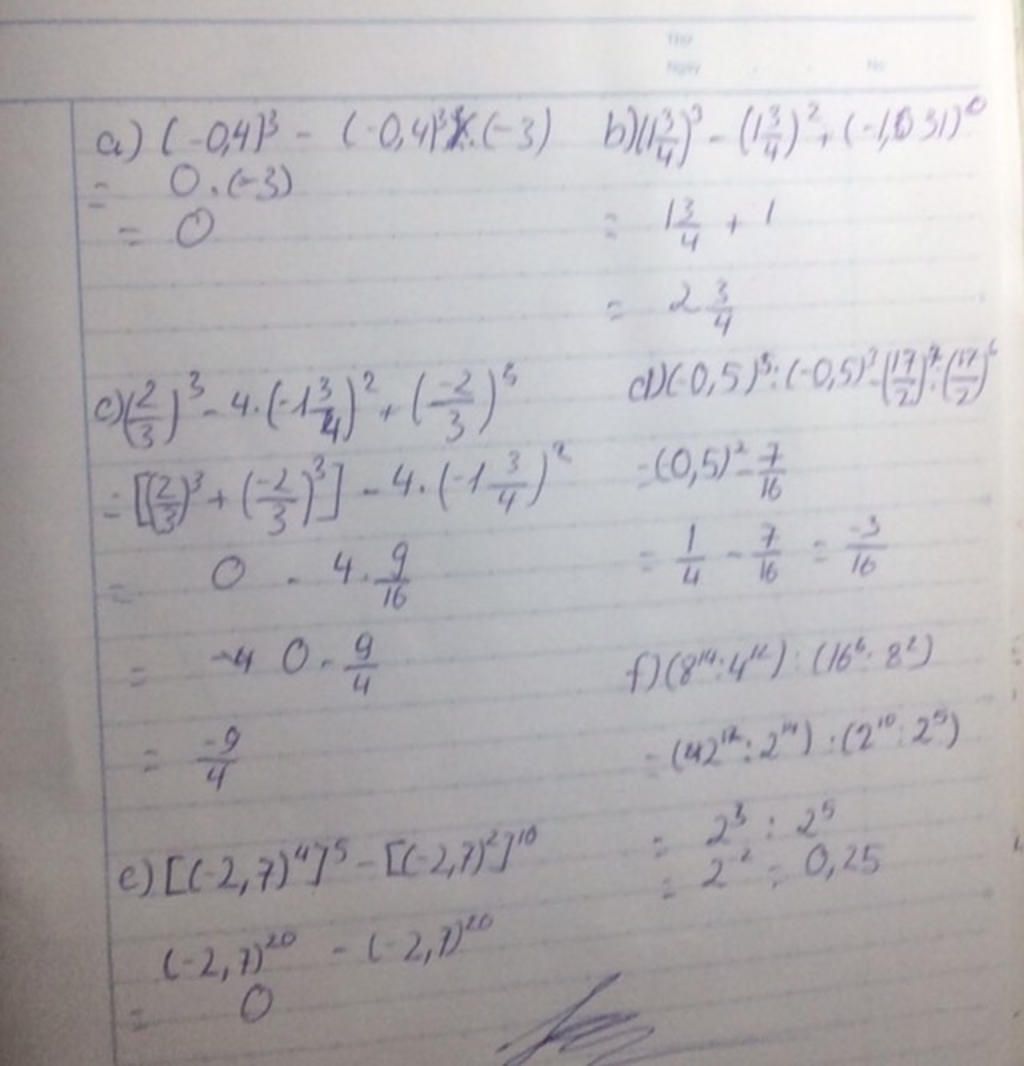 Thứ
Ngày No
a) (-0,4)³ - (-0,4)³.(-3)
= 0.(-3)
= 0
b) (1 3/4)³ - (1 3/4)² + (-1,031)⁰
= 1 3/4 + 1
= 2 3/4
c) (2/3)³ - 4.(-1 3/4)² + (-2/3)³
= [(2/3)³ + (-2/3)³] - 4.(-1 3/4)²
= 0 - 4.9/16
= 0 - 9/4
= -9/4
d) (-0,5)⁵:(-0,5)³-(17/2)⁷:(17/2)⁶
=(-0,5)²-7/16
= 1/4 - 7/16 = -3/16
e) [(-2,7)⁴]⁵ - [(-2,7)²]¹⁰
(-2,7)²⁰ - (-2,7)²⁰
= 0
f) (8¹⁴:4¹²):(16⁶:8²)
= 2³ : 2⁵
= 2² = 0,25